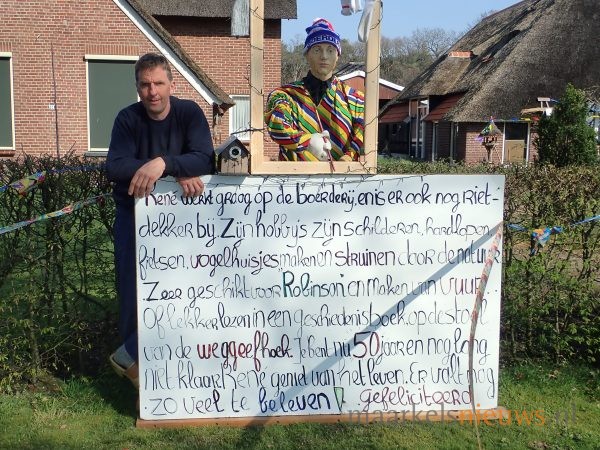 René werkt graag op de boerderij, en is er ook nog riet-
dekker bij. Zijn hobby's zijn schilderen, hardlopen,
fietsen, vogelhuisjes, maken en struinen door de natuur.
Zeer geschikt voor Robinson en maken van vuur
Of lekker lezen in een geschiedenisboek, op de stoel
van de weggeefhoek. Je bent nu 50 jaar en nog lang
niet klaar. René geniet van het leven. Er valt nog
zo veel te beleven! gefeliciteerd
maarkelsnieuws.nl